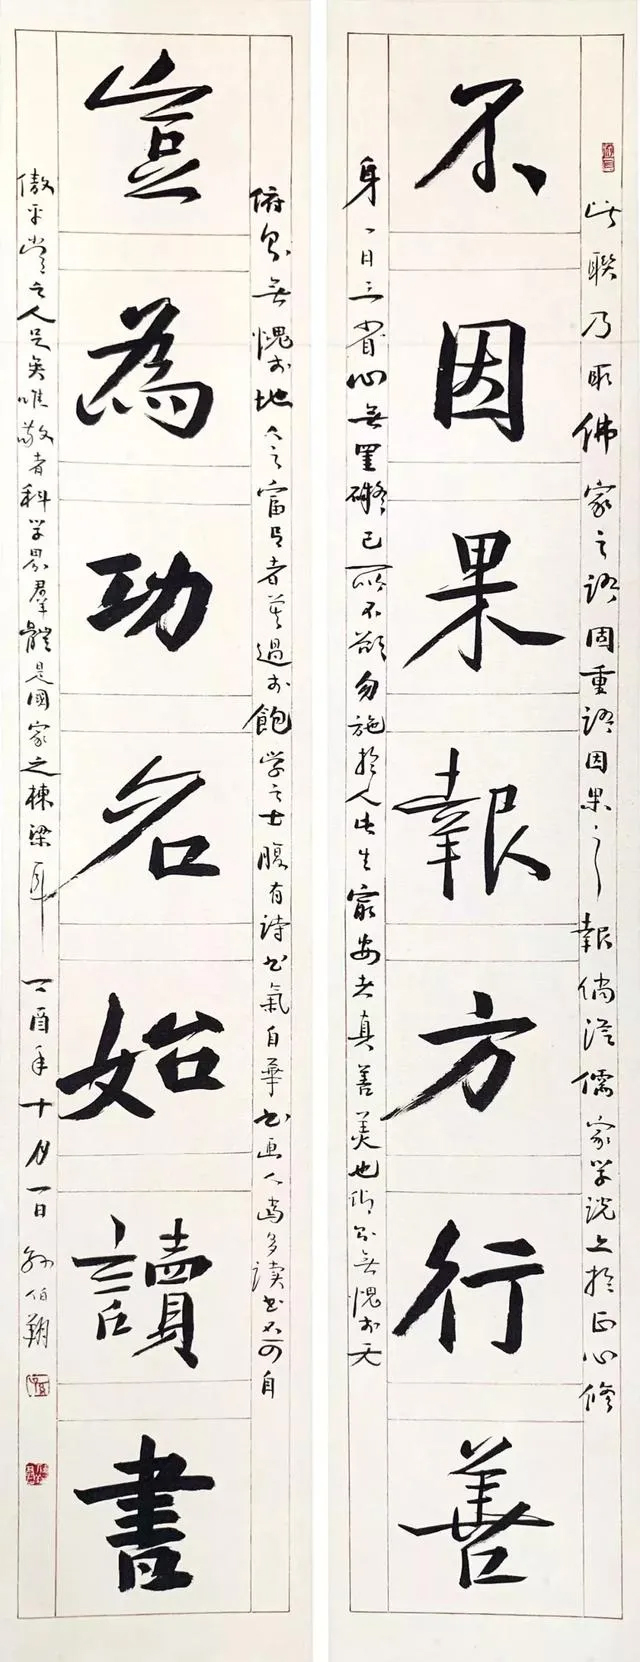 此聯乃取佛家之語因重語因果之報倘從儒家学説上於正心修
不因果報方行善
身一日三省心無罣礙己所不欲勿施於人此生最安者真善美也仰則無愧於天
俯則無愧於地人之富有者莫過於飽学之士腹有詩书氣自華书画人當多读书不可自
豈為功名始讀書
傲平常之人足矣唯敬者科学界羣體是國家之棟梁耳 丁酉年十月一日 孙伯翔